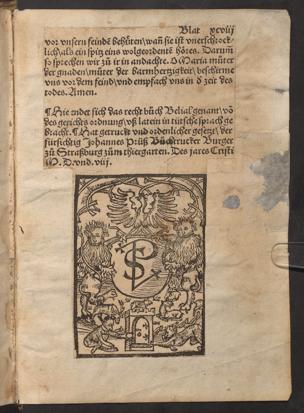 Blat xcviij
vor vnsern feindē behüten\wañ sie ist vnerschrock⸗
lich\als ein spitz eins wolgeordentē hŏres. Darum̄
so sprechen wir zů ir in andachte. O Maria můter
der gnaden\můter der barmhertzigkeit\beschirme
vns vor dem feind\vnd empfach vns in ď zeit des
todes. Amen.
¶Hie endet sich das recht bůch Belial genant\vō
des gerichts ordnung\vß latein in tütsche sprach ge
bracht. ¶Hat getruckt vnd ordenlicher gesetzt\der
fürsichtig Johannes Prüß Bůchtrucker Burger
zů Straßburg zum thiergarten. Des jares Cristi
M. D. vnd. viij.
SP